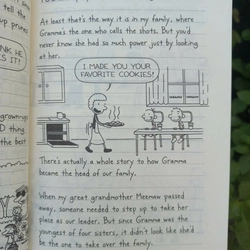 At least that's the way it is in my family, where
Gramma's the one who calls the shots. But you'd
never know she had so much power just by looking
at her.
I MADE YOU YOUR
FAVORITE COOKIES!
There's actually a whole story to how Gramma
became the head of our family.
When my great grandmother Meemaw passed
away, someone needed to step up to take her
place as our leader. But since Gramma was the
youngest of four sisters, it didn't look like she'd
be the one to take over the family.
NK HE
ES IT!
grownups
D thing.
the best